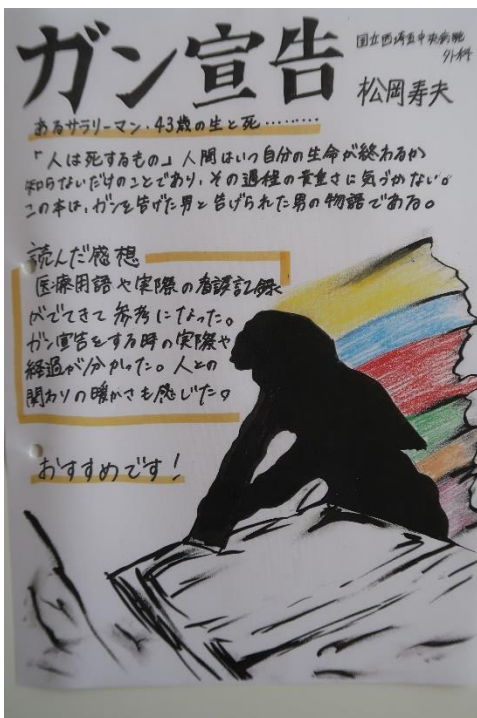 ガン宣告
国立西埼玉中央病院
外科
松岡寿夫
あるサラリーマン・43歳の生と死………
「人は死するもの」人間はいつ自分の生命が終わるか
知らないだけのことであり、その過程の貴重さに気づかない。
この本は、ガンを告げた男と告げられた男の物語である。
読んだ感想
医療用語や実際の看護記録
がでてきて参考になった。
ガン宣告をする時の実際や
経過が分かった。人との
関わりの暖かさも感じた。
おすすめです!